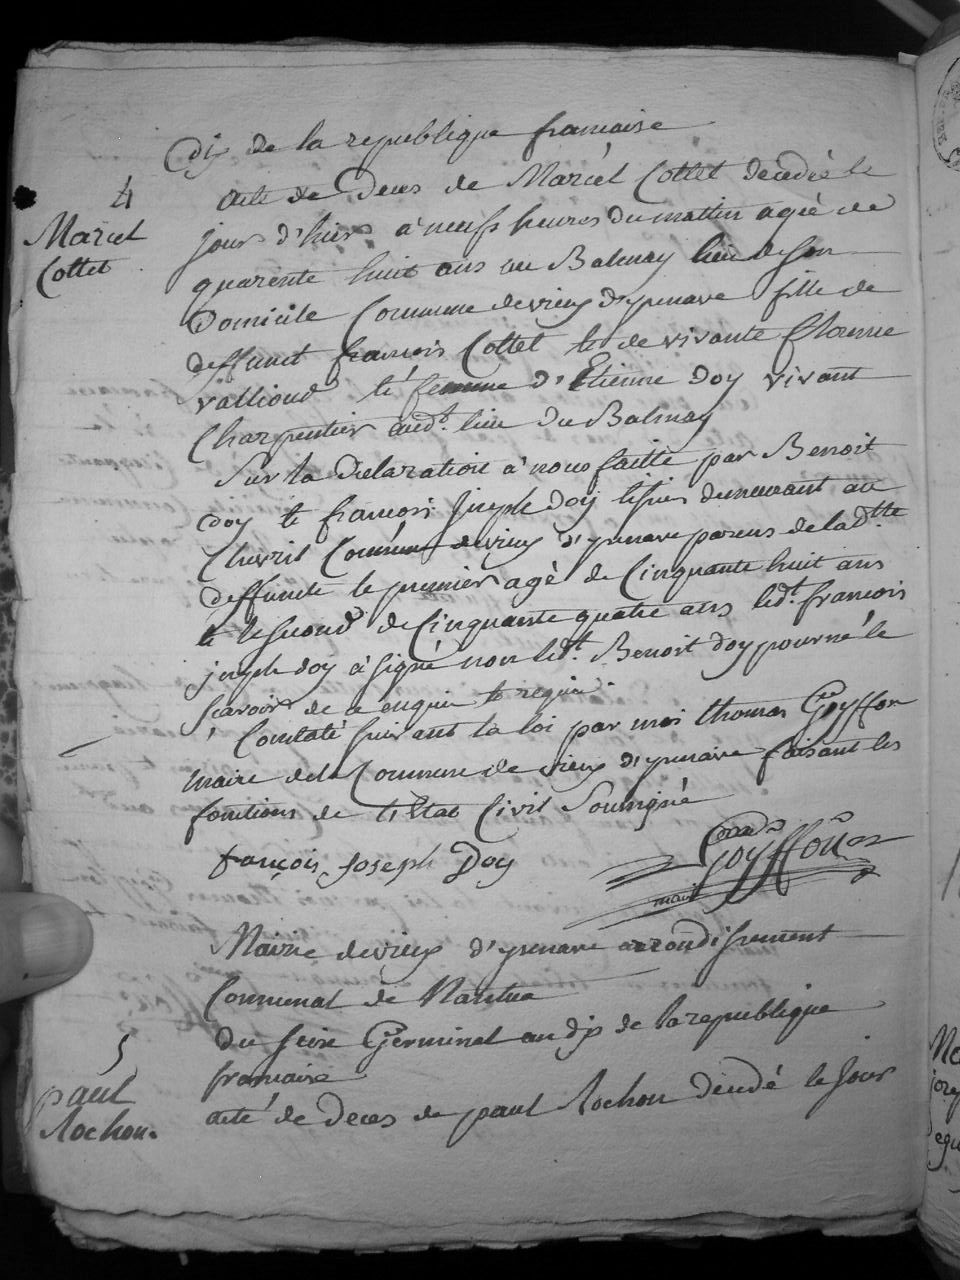 dix de la republique francaise
4
Marcel
Cottet
acte de Deces de Marcel Cottet decedée le
jours d'hier à neufs heures du mattin agée de
quarente huit ans au Balmay lieu de son
Domicile Commune de vieux d'ysenave fille de
deffunct francois Cottet et de vivante
vallioud et femme d'Etienne Doy vivant
Charpentier audt. lieu du Balmay
Sur la Declaration à nous faitte par Benoit
Doy et francois joseph Doy demeurant au
Chevril Commune de vieux d'ysenave parens de ladtte
deffuncte le premier agé de Cinquante huit ans
et le second de Cinquante quatre ans ledt. francois
joseph doy à signé non ledt. Benoit doy pour né le
scavoir de ce enquis et requis.
Constaté suivant la loi par moi thomas Goyffon
maire de la Commune de vieux d'ysenave faisant les
fonctions de l'Etat Civil Soussigné
françois Joseph Doy
Goyffon
maire
Mairie de vieux d'ysenave arrondissement
Communal de Nantua
Du seize Germinal an dix de la republique
francaise
5
paul
Rochon.
acte de Deces de paul Rochon décedé le jour